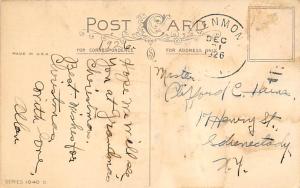 POST CARD
1926
FOR CORRESPONDENCE
FOR ADDRESS ONLY
MADE IN U.S.A.
DEC
1
26
Hope we will see
you at grandmas
Christmas.
Best Wishes for
Christmas
With love,
Alan
Master
Clifford C.
17 Henry St.
Schenectady
N.Y.
SERIES 1640 D